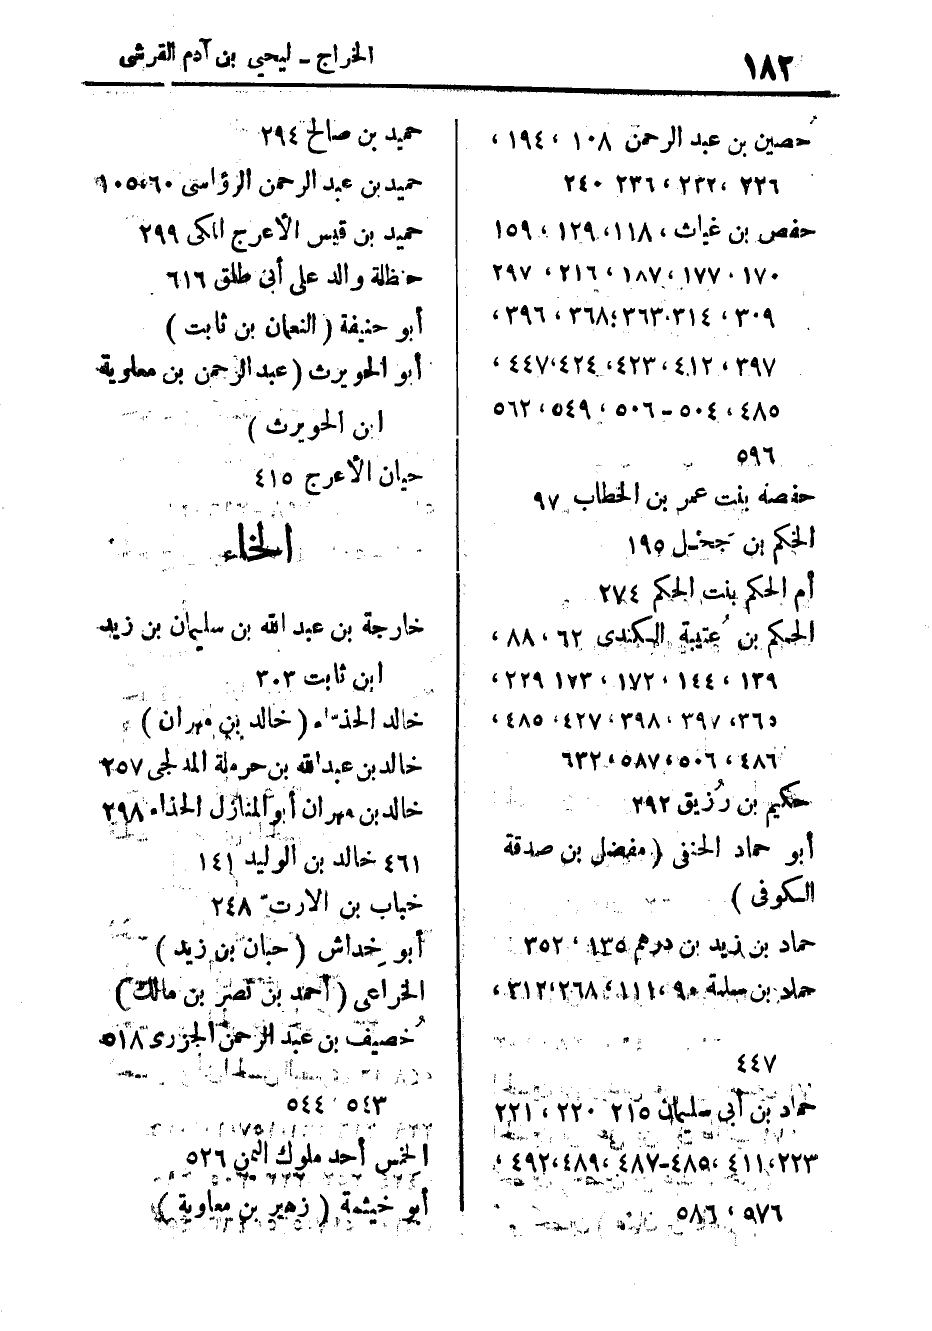 ١٨٢
الخراج ـ ليحيى بن آدم القرشى
حُصين بن عبد الرحمن ١٠٨ ، ١٩٤ ،
٢٢٦ ، ٢٣٢ ، ٢٣٦ ٢٤٠
حفص بن غياث ، ١١٨ ، ١٢٩ ، ١٥٩
١٧٠ ، ١٧٧ ، ١٨٧ ، ٢١٦ ، ٢٩٧
٣٠٩ ، ٣١٤ ، ٣٦٣ ، ٣٦٨ ، ٣٩٦ ،
٣٩٧ ، ٤١٢ ، ٤٢٣ ، ٤٢٤ ، ٤٤٧ ،
٤٨٥ ، ٥٠٤ - ٥٠٦ ، ٥٤٩ ، ٥٦٢
٥٩٦
حفصه بنت عمر بن الخطاب ٩٧
الحكم بن جحل ١٩٥
أم الحكم بنت الحكم ٢٧٤
الحكم بن عُتيبة الكندى ٦٢ ، ٨٨ ،
١٣٩ ، ١٤٤ ، ١٧٢ ، ١٧٣ ٢٢٩ ،
٣٦٥ ، ٣٩٧ ، ٣٩٨ ، ٤٢٧ ، ٤٨٥ ،
٤٨٦ ، ٥٠٦ ، ٥٨٧ ، ٦٣٢
حكيم بن رُزيق ٢٩٢
أبو حماد الحنفى ( مفضل بن صدقة
الكوفى )
حماد بن زيد بن درهم ١٣٥ ، ٣٥٢
حماد بن سلمة ٩٠ ، ١١١ ، ٢٦٨ ، ٣١٢ ،
٤٤٧
حماد بن أبى سليمان ٢١٥ ٢٢٠ ، ٢٢١
٢٢٣ ، ٤١١ ، ٤٨٥-٤٨٧ ، ٤٨٩ ، ٤٩٢ ،
٥٧٦ ، ٥٨٦
حميد بن صالح ٢٩٤
حميد بن عبد الرحمن الرؤاسى ٦٠ ، ١٠٥
حميد بن قيس الأعرج المكى ٢٩٩
حنظلة والد على أبى طلق ٦١٦
أبو حنيفة ( النعمان بن ثابت )
أبو الحويرث ( عبد الرحمن بن معاوية
ابن الحويرث )
حيان الأعرج ٤١٥
الخاء
خارجة بن عبد الله بن سليمان بن زيد
ابن ثابت ٣٠٣
خالد الحذاء ( خالد بن مهران )
خالد بن عبد الله بن حرملة المدلجى ٢٥٧
خالد بن مهران أبو المنازل الحذاء ٢٩٨
٤٦١ خالد بن الوليد ١٤١
خباب بن الارتّ ٢٤٨
أبو خِداش ( حبان بن زيد )
الخزاعى ( أحمد بن نصر بن مالك )
خُصيف بن عبد الرحمن الجزرى ٥١٨
٥٤٣ ، ٥٤٤
الخمس أحد ملوك اليمن ٥٢٦
أبو خيثمة ( زهير بن معاوية )